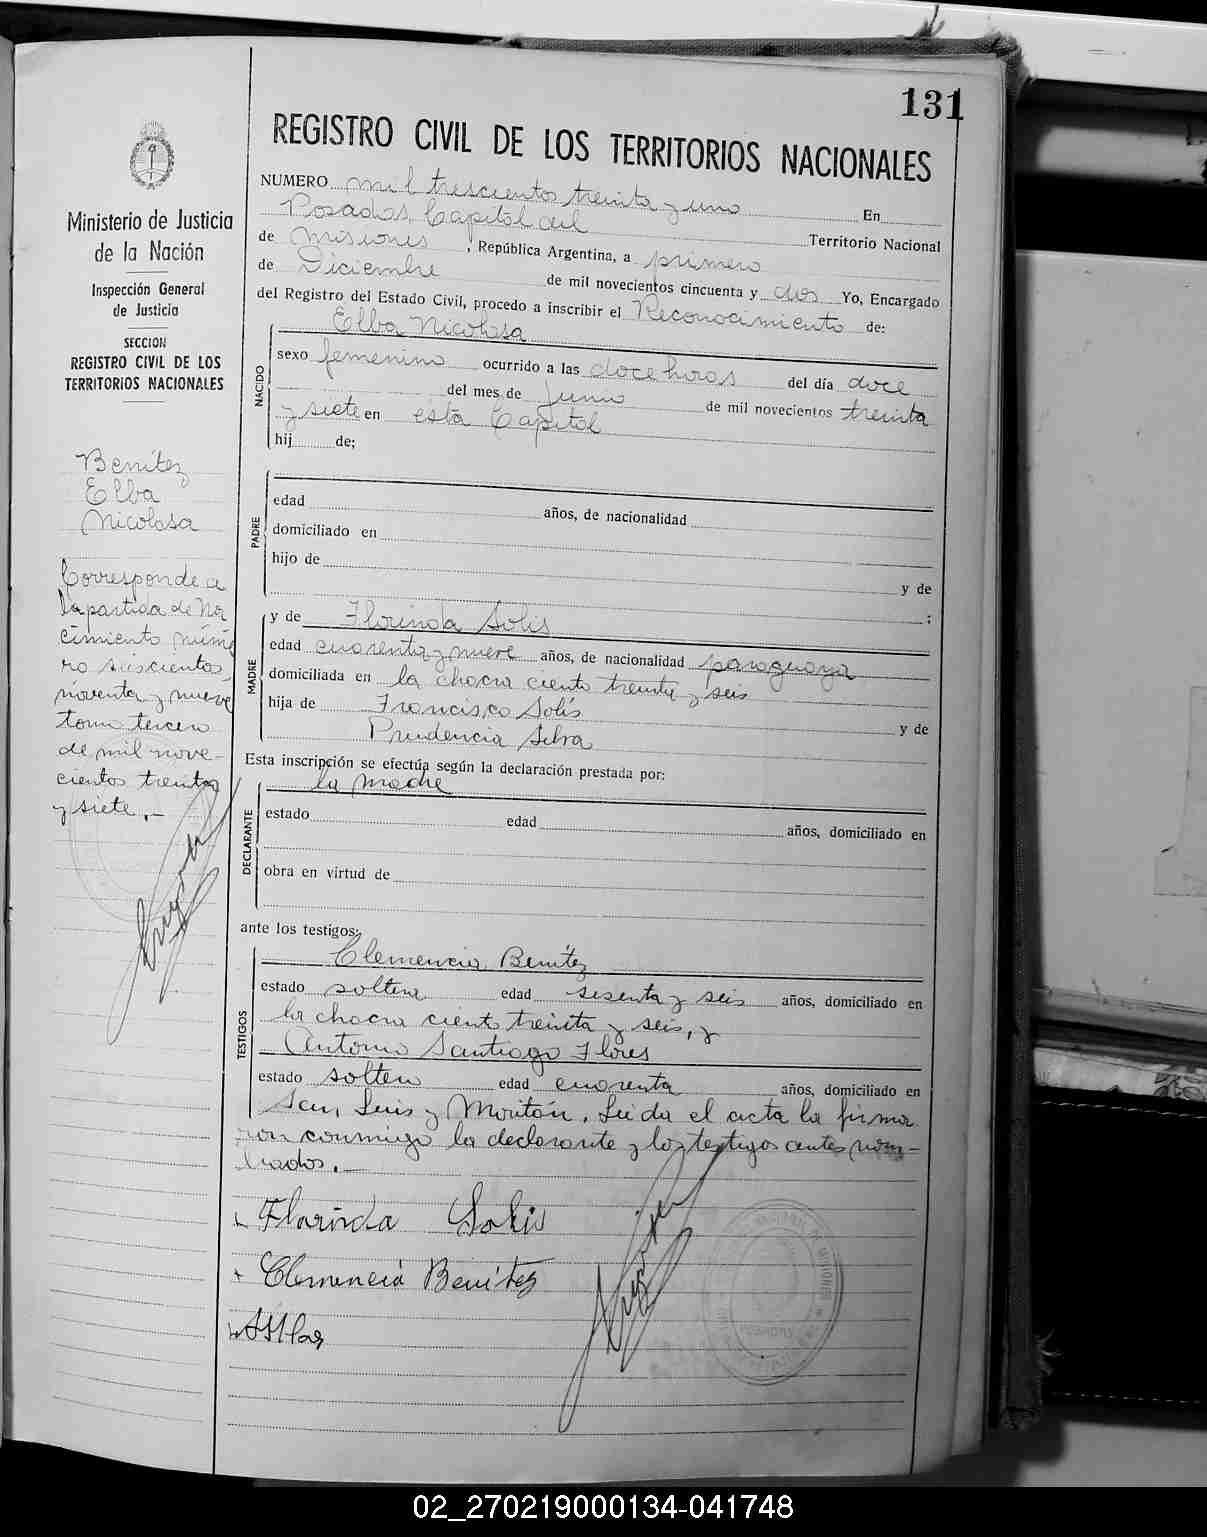 131
REGISTRO CIVIL DE LOS TERRITORIOS NACIONALES
Ministerio de Justicia
de la Nación
Inspección General
de Justicia
SECCION
REGISTRO CIVIL DE LOS
TERRITORIOS NACIONALES
Benítez
Elba
Nicolasa
Corresponde a
la partida de Na
cimiento núme
ro seiscientos
noventa y nueve
tomo tercero
de mil nove-
cientos treinta
y siete.-
NUMERO mil trescientos treinta y uno En
Posadas, Capital del Territorio Nacional
de Misiones, República Argentina, a primero
de Diciembre de mil novecientos cincuenta y dos Yo, Encargado
del Registro del Estado Civil, procedo a inscribir el Reconocimiento de:
NACIDO
Elba Nicolasa
sexo femenino ocurrido a las doce horas del día doce
del mes de Junio de mil novecientos treinta
y siete en esta Capital
hij de;
PADRE
edad años, de nacionalidad
domiciliado en
hijo de
y de
;
MADRE
y de Florinda Solis
edad cuarenta y nueve años, de nacionalidad paraguaya
domiciliada en la chacra ciento treinta y seis
hija de Francisco Solís y de
Prudencia Silva
Esta inscripción se efectúa según la declaración prestada por:
DECLARANTE
la madre
estado edad años, domiciliado en
obra en virtud de
ante los testigos:
TESTIGOS
Clemencia Benítez
estado soltera edad sesenta y seis años, domiciliado en
la chacra ciento treinta y seis, y
Antonio Santiago Flores
estado soltero edad cuarenta años, domiciliado en
San Luis y Moritán. Leída el acta la firma
ron conmigo la declarante y los testigos antes nom-
brados.-
Florinda Solis
Clemencia Benítez
02_270219000134-041748